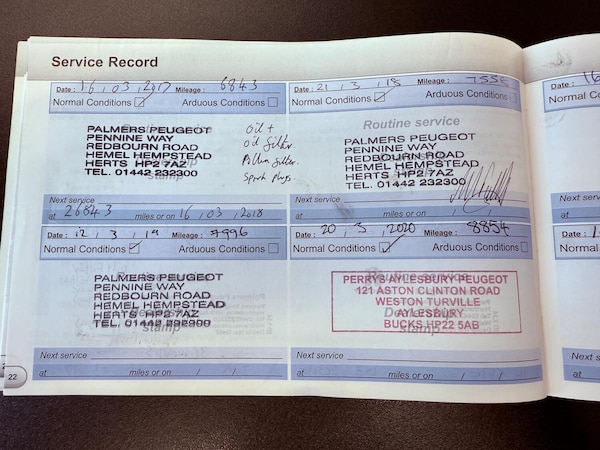 Service Record
Date : 16 , 03 , 2017 Mileage : 6843
Normal Conditions Arduous Conditions
PALMERS PEUGEOT
PENNINE WAY
REDBOURN ROAD
HEMEL HEMPSTEAD
HERTS HP2 7AZ
TEL. 01442 232300
stamp
oil +
oil filter
Pollen filter.
Spark plugs.
Next service
at 26843 miles or on 16 , 03 , 2018
Date : 21 , 3 , 18 Mileage :
Normal Conditions Arduous Conditions
Routine service
PALMERS PEUGEOT
PENNINE WAY
REDBOURN ROAD
HEMEL HEMPSTEAD
HERTS HP2 7AZ
TEL. 01442 232300
stamp
Next service
at miles or on / /
Date : 12 , 3 , 19 Mileage : 7996
Normal Conditions Arduous Conditions
PALMERS PEUGEOT
PENNINE WAY
REDBOURN ROAD
HEMEL HEMPSTEAD
HERTS HP2 7AZ
TEL. 01442 232300
stamp
Next service
at miles or on / /
Date : 20 , 3 , 2020 Mileage : 8854
Normal Conditions Arduous Conditions
Routine service
PERRYS AYLESBURY PEUGEOT
121 ASTON CLINTON ROAD
WESTON TURVILLE
AYLESBURY
BUCKS HP22 5AB
stamp
Next service
at miles or on / /
22
Date : 16
Normal C
Next serv
at
Date :
Normal Co
Next s
at